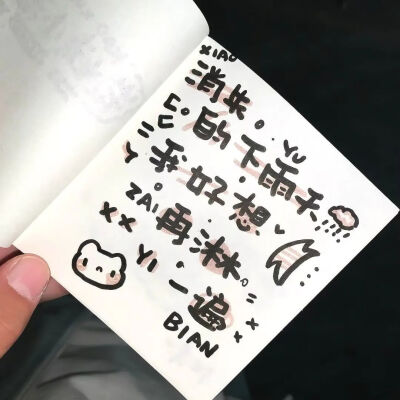 XIAO
消失
的下雨天
YU
我好想
ZAI再淋
YI一遍
BIAN